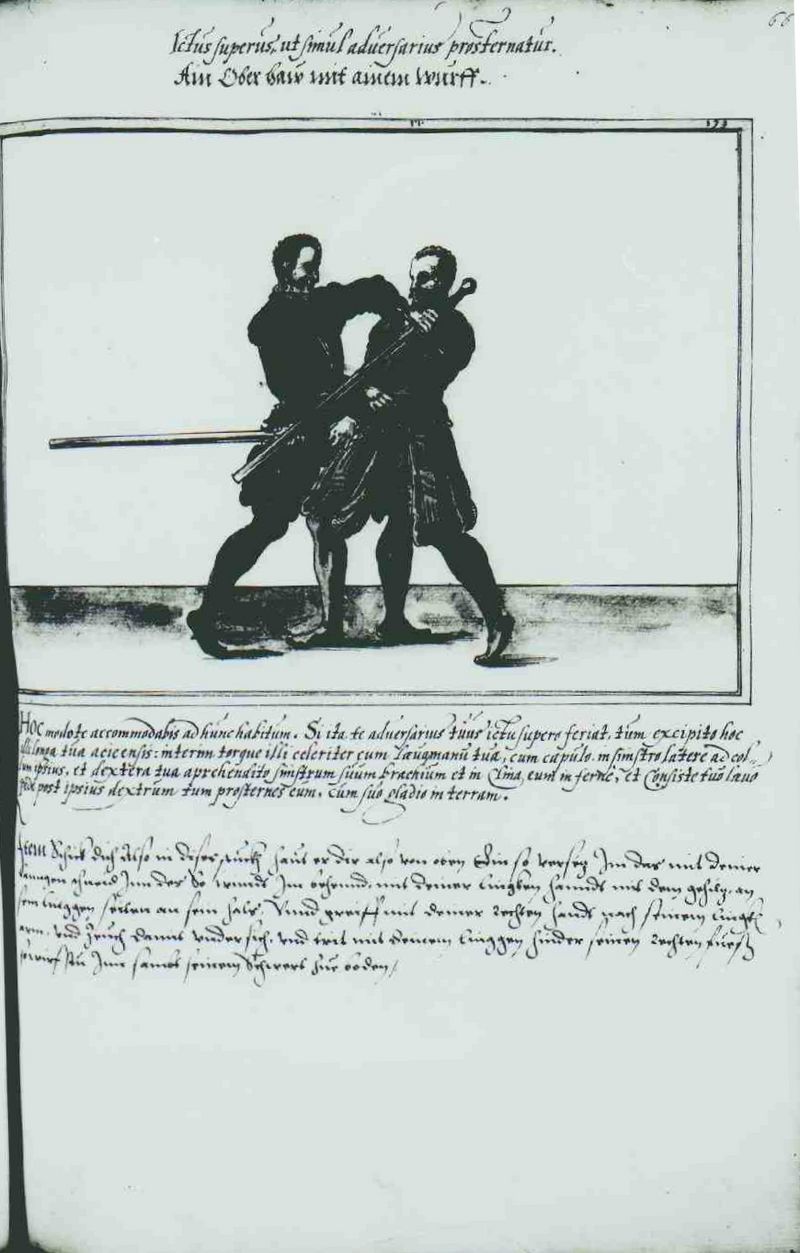 66
Ictus superus, ut simul adversarius prosternatur.
Ain Ober haw mit ainem Wurff.
Hoc modo te accommodabis ad hunc habitum. Si ita te adversarius tuus ictu supero feriat, tum excipito hoc
illi longa tua acie ensis: interim torque illi celeriter cum manu tua, cum capulo, in sinistro latere ad col-
lum ipsius, et dextera tua aprehendito sinistrum suum brachium et in eum inferne, et Consiste tuo laevo
pede post ipsius dextrum tum prosternes eum, cum suo gladio in terram.
Item Schick dich Also in diser stuckh haut er dir also von oben Ein so versetz Im das mit deiner
lanngen schneid Inn des So windt Im mit deiner linngken hanndt mit dem gehiltz, an
sein linggen seitten an sein hals, Vnnd greiff mit deiner Rechten handt nach seinem lingk
arm, vnd Zeuch damit vnder sich, vnd trit mit deinem linggen hinder seinen Rechten fuesz
so wirfstu Inn sambt seinem Schwert zue boden,